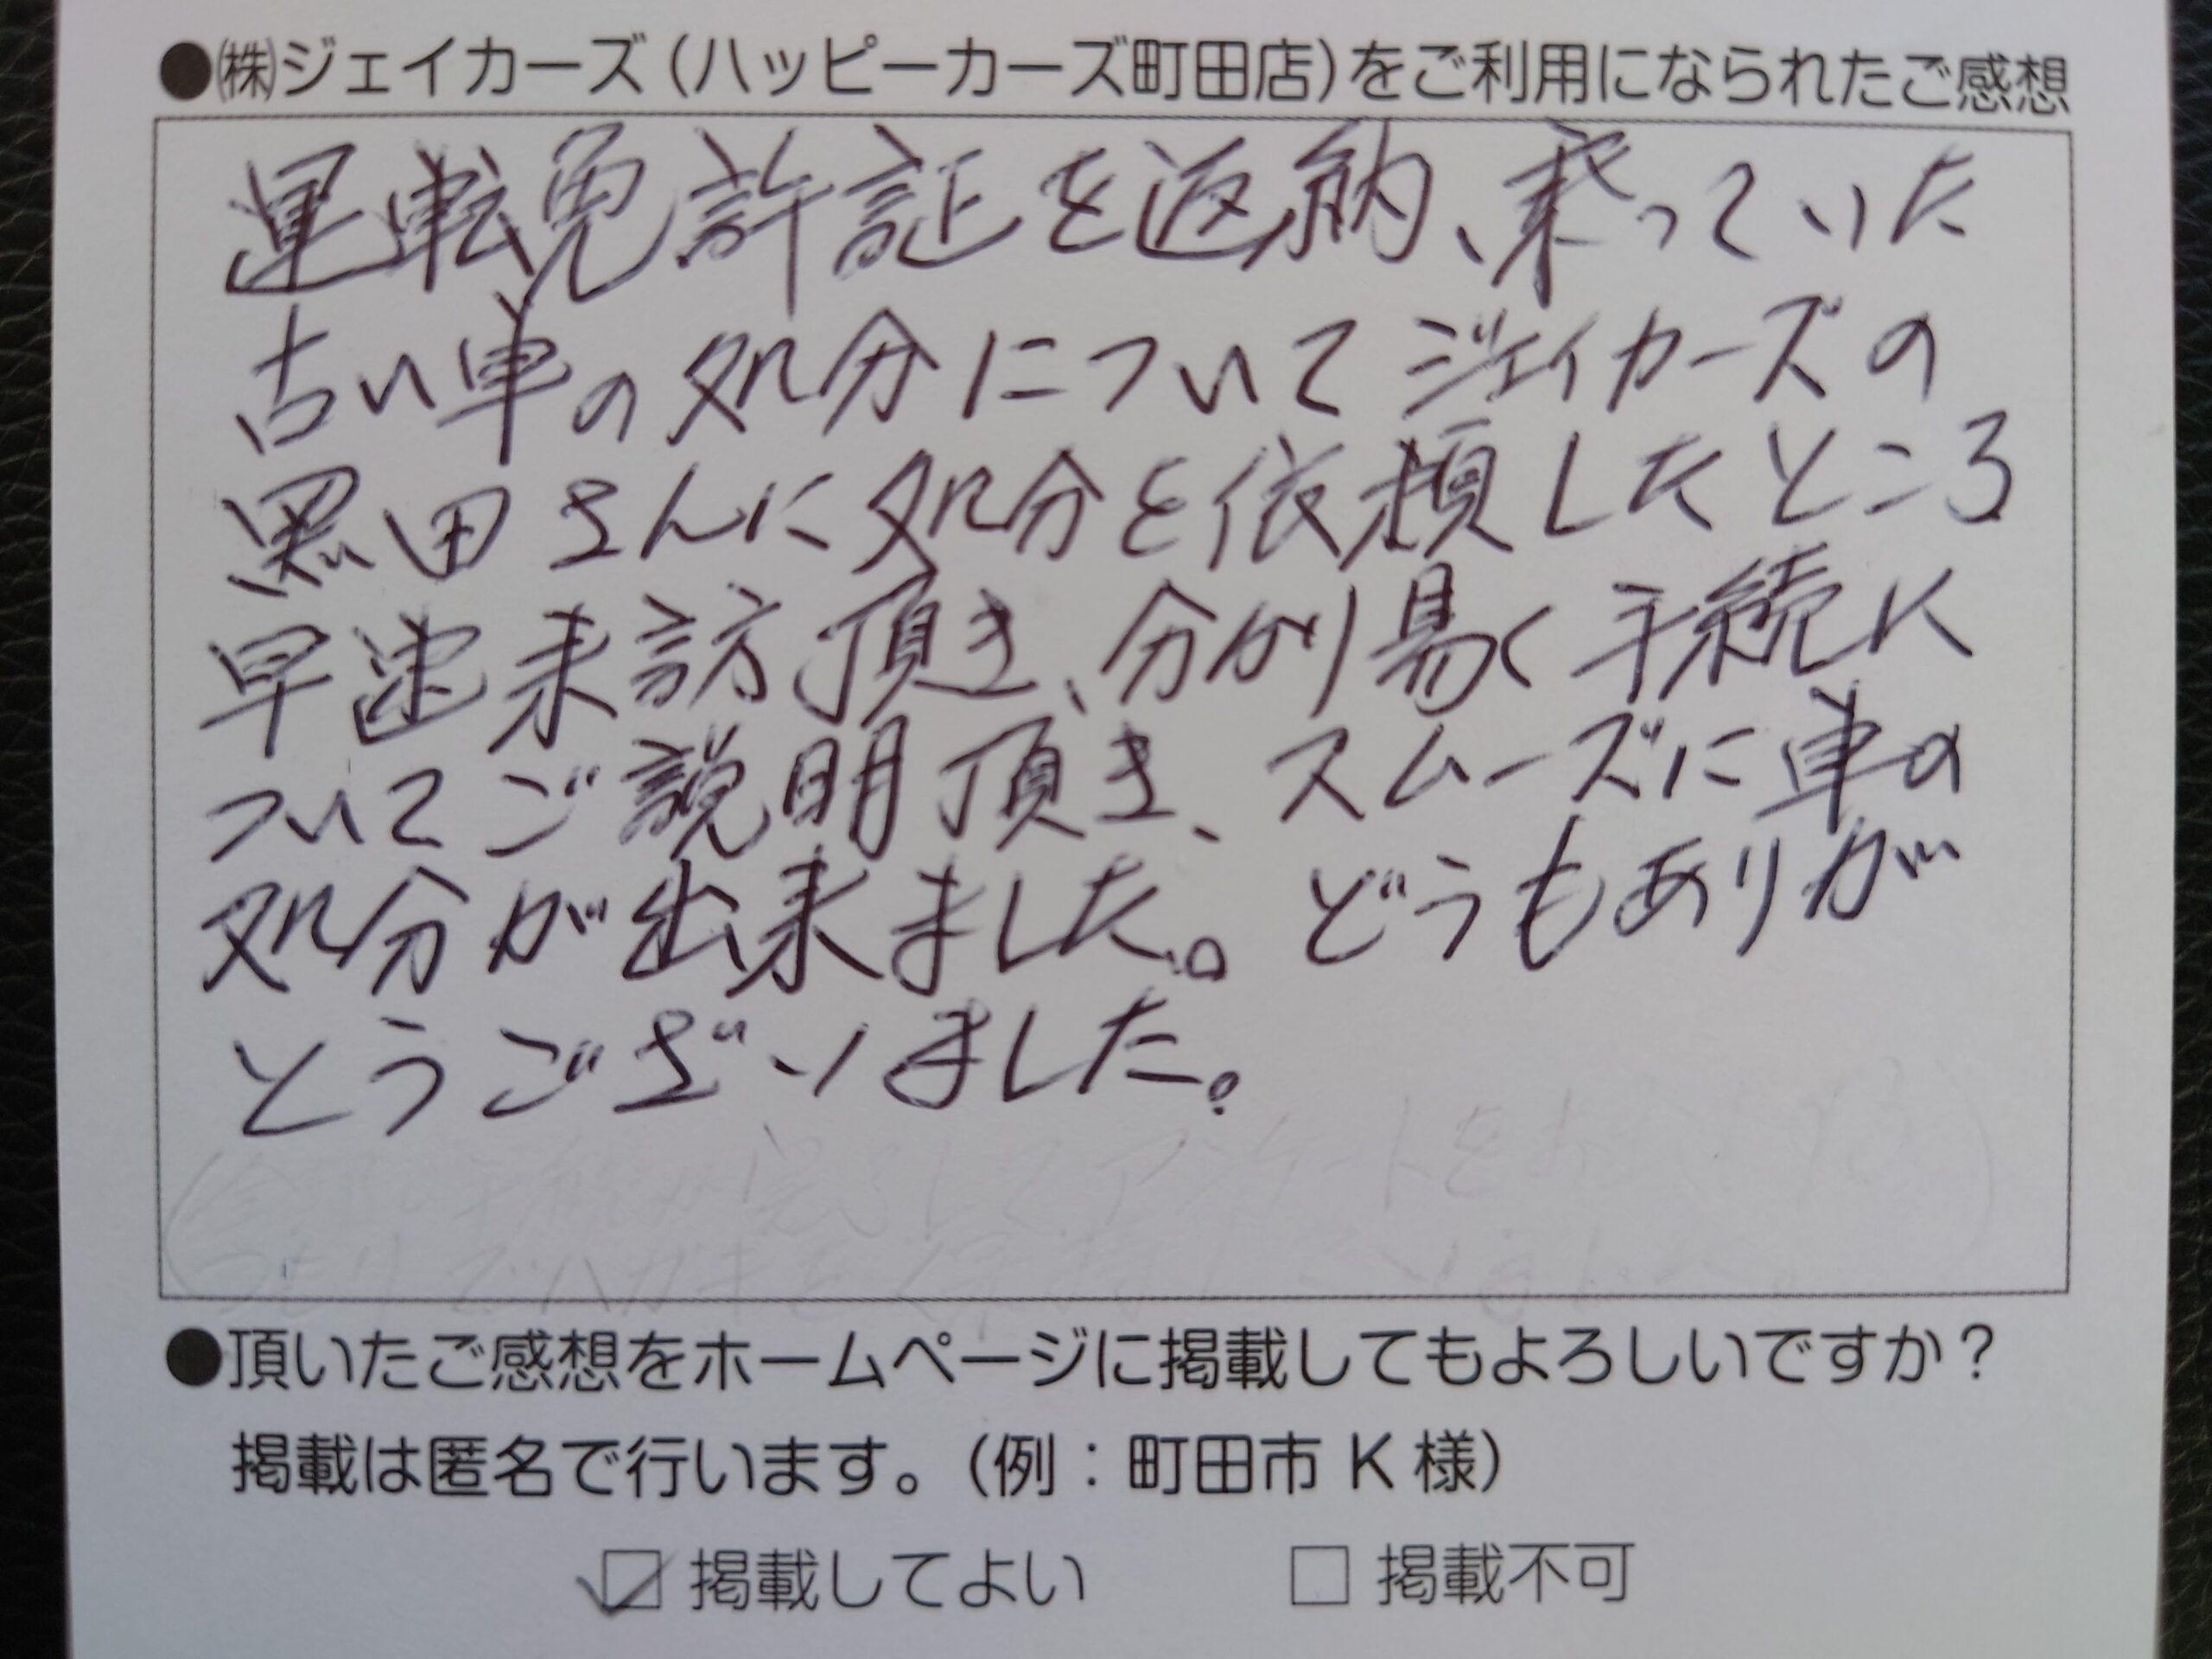 ●㈱ジェイカーズ（ハッピーカーズ町田店）をご利用になられたご感想
運転免許証を返納、乗っていた
古い車の処分についてジェイカーズの
黒田さんに処分を依頼したところ
早速来訪頂き、分かり易く手続に
ついてご説明頂き、スムーズに車の
処分が出来ました。どうもありが
とうございました。
●頂いたご感想をホームページに掲載してもよろしいですか？
掲載は匿名で行います。（例：町田市 K 様）
☑ 掲載してよい □ 掲載不可